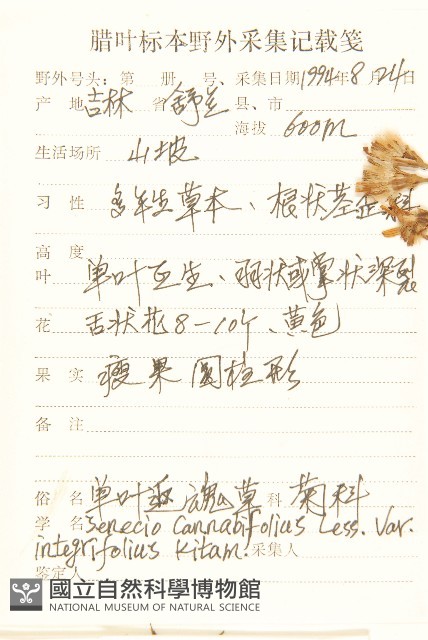 腊叶标本野外采集记载笺
野外号头: 第 册 号、采集日期1994年8月24日
产 地 吉林 省 舒兰 县、市
海拔 600m
生活场所 山坡
习 性 多年生草本、根状茎歪斜
高 度
叶 单叶互生、羽状或掌状深裂
花 舌状花8-10个、黄色
果 实 瘦果 圆柱形
备 注
俗 名 单叶返魂草 科 菊科
学 名 Senecio Cannabifolius Less. Var.
integrifolius Kitam. 采集人
鉴定人
國立自然科學博物館
NATIONAL MUSEUM OF NATURAL SCIENCE